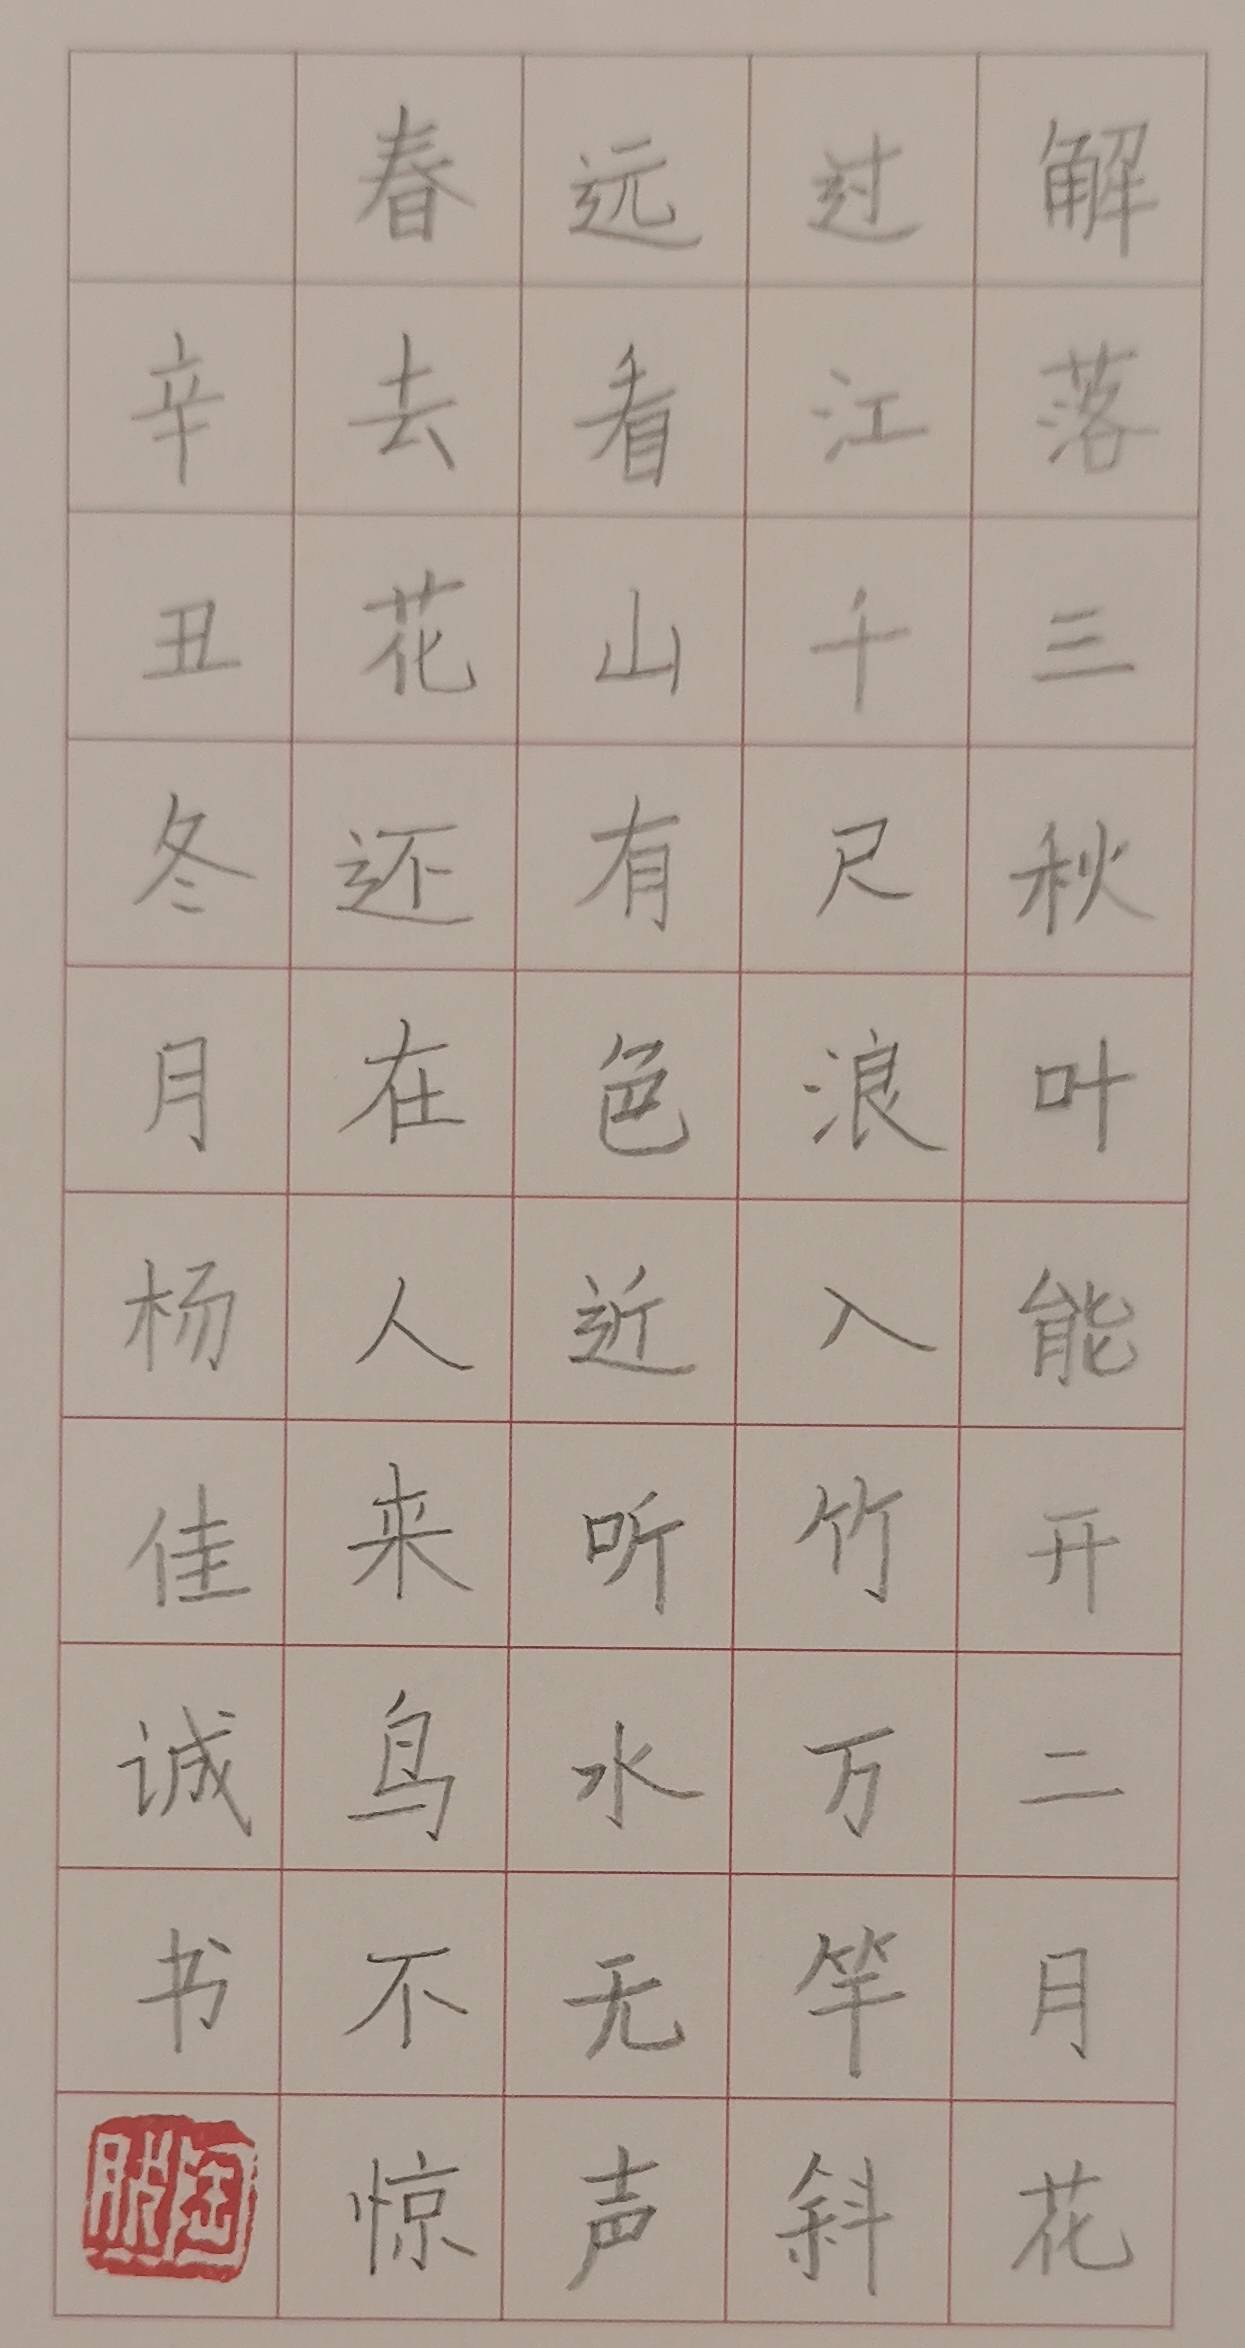 解落三秋叶能开二月花
过江千尺浪入竹万竿斜
远看山有色近听水无声
春去花还在人来鸟不惊
辛丑冬月杨佳诚书